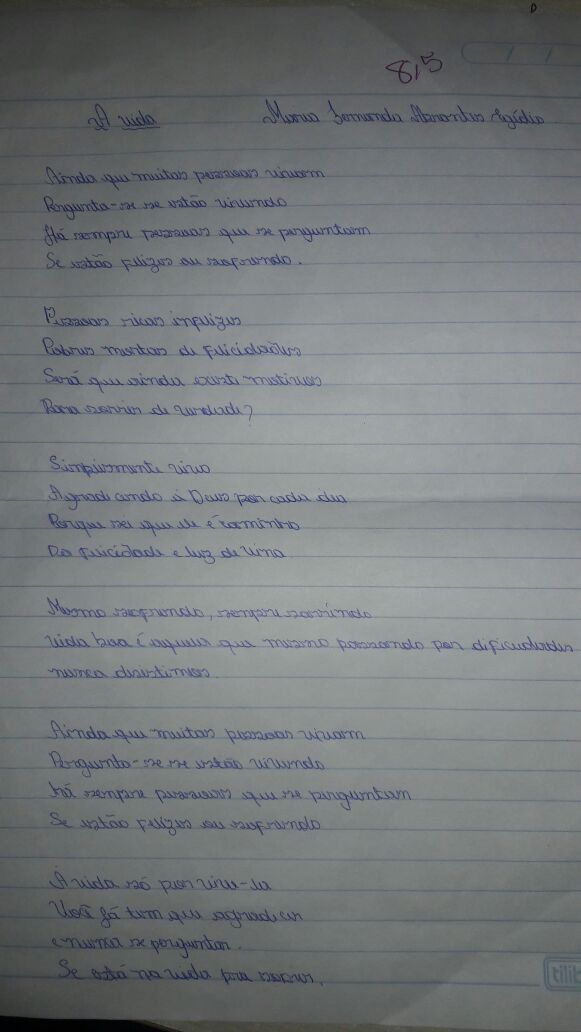 8,5
A vida Maria Fernanda Abrantes Egídio
Ainda que muitas pessoas vivam
Pergunta-se se estão vivendo
Há sempre pessoas que se perguntam
Se estão felizes ou sofrendo.
Pessoas ricas infelizes
Pobres mortas de felicidades
Será que ainda existe motivos
Para sorrir de verdade?
Simplesmente vivo
Agradecendo à Deus por cada dia
Porque sei que ele é caminho
Da felicidade e luz de
Mesmo sofrendo, sempre sorrindo
Vida boa é aquela que mesmo passando por dificuldades
nunca desistimos.
Ainda que muitas pessoas vivam
Pergunta-se se estão vivendo
há sempre pessoas que se perguntam
Se estão felizes ou sofrendo
A vida só por vive-la
Você já tem que agradecer
e nunca se perguntar.
Se está na vida pra sofrer.
tilib